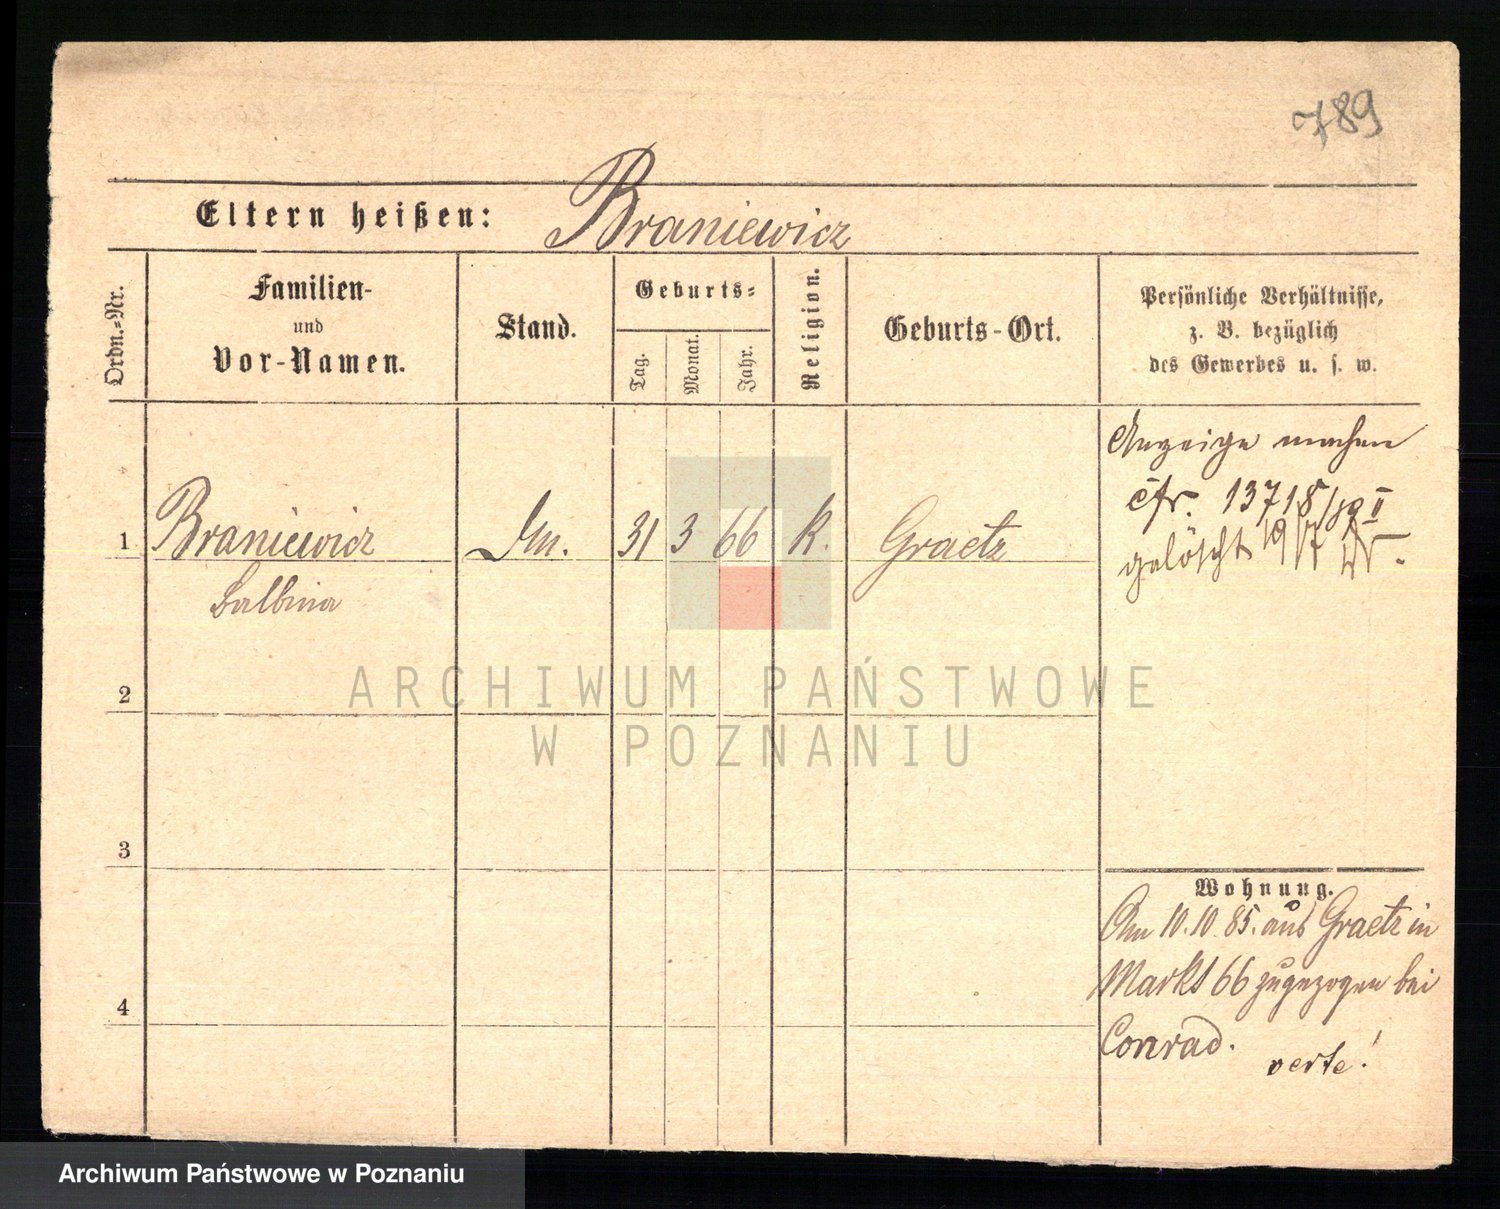 789
Eltern heißen: Braniewicz
Ordn.-Nr.
Familien-
und
Vor-Namen.
Stand.
Geburts-
Tag.
Monat.
Jahr.
Religion.
Geburts-Ort.
Persönliche Verhältnisse,
z. B. bezüglich
des Gewerbes u. s. w.
Anzeige machen
cfr. 13718/89 II
gelöscht 19/7
1 Braniewicz 31 3 66 k. Graetz
Balbina
2
3
4
Wohnung.
Am 10.10.85. aus Graetz in
Markt 66 zugezogen bei
Conrad.
verte!
ARCHIWUM PAŃSTWOWE
W POZNANIU
Archiwum Państwowe w Poznaniu